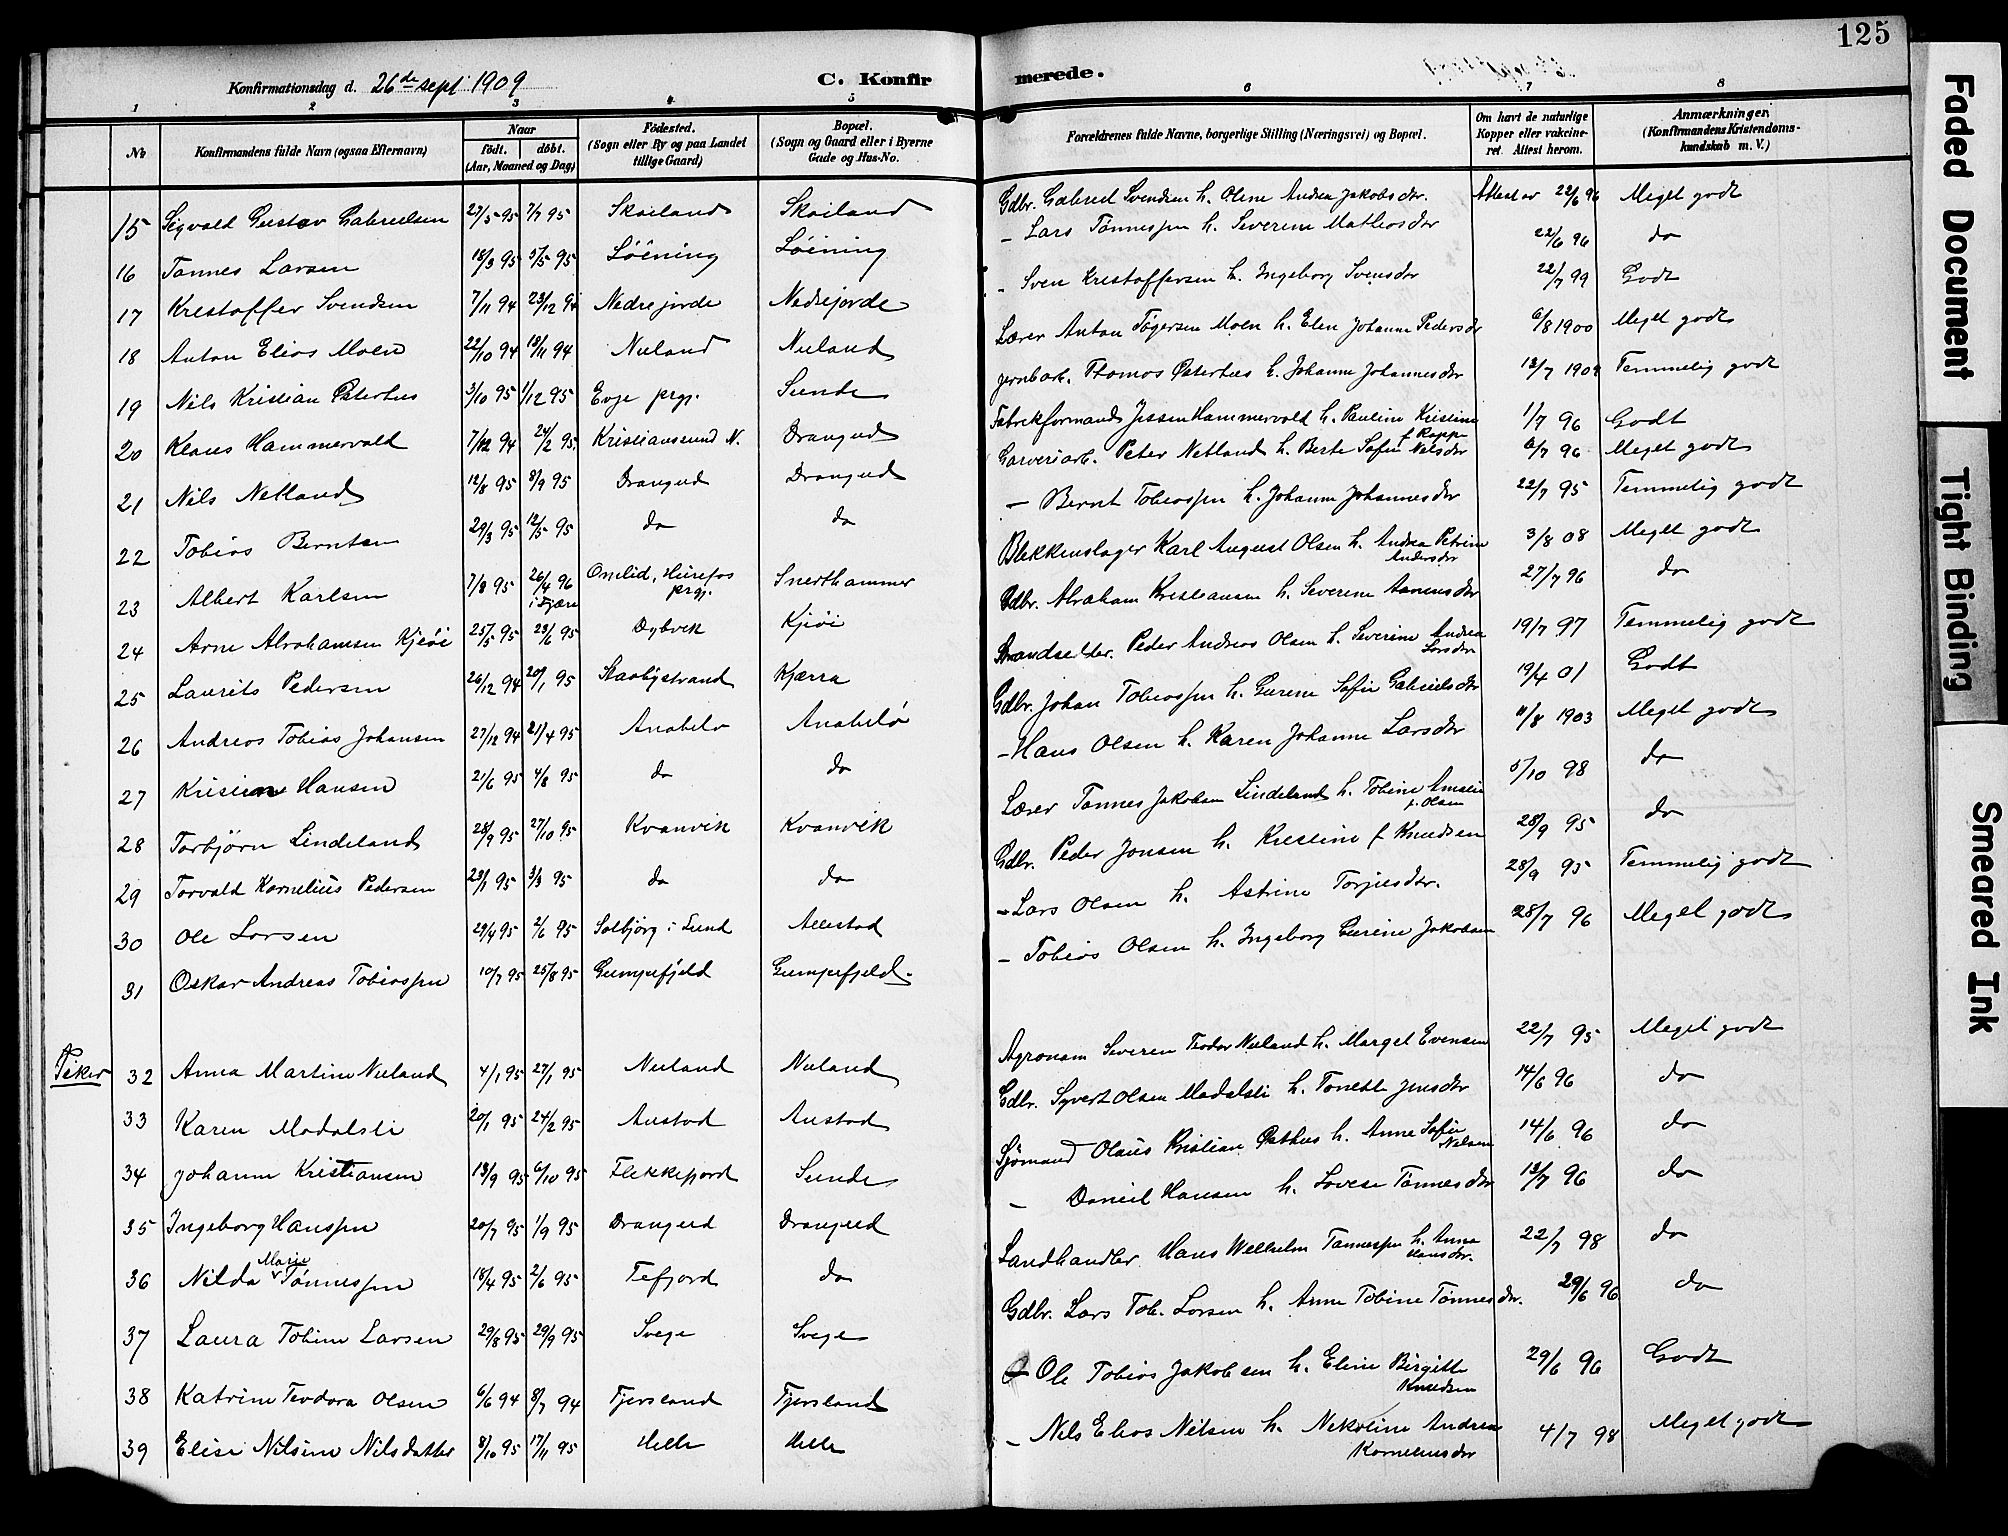 125
Konfirmationsdag d. 26de sept 1909
C. Konfirmerede.
1 2 3 4 5 6 7 8
No
Konfirmandens fulde Navn (ogsaa Efternavn)
Naar
født. døbt.
(Aar, Maaned og Dag)
Fødested.
(Sogn eller By og paa Landet
tillige Gaard)
Bopæl.
(Sogn og Gaard eller i Byerne
Gade og Hus-No.
Forældrenes fulde Navne, borgerlige Stilling (Næringsvei) og Bopæl.
Om havt de naturlige
Kopper eller vakcine-
ret. Attest herom.
Anmærkninger.
(Konfirmandens Kristendoms-
kundskab m. V.)
15 Sigvald Gustav Gabrielsen 27/5 95 7/7 95 Skoiland Skoiland Gdbr. Gabriel Svendsen h. Oline Andrea Jakobsdtr. Attest av 22/6 96 Meget godt
16 Tønnes Larsen 18/3 95 5/5 95 Løining Løining – Lars Tønnessen h. Severine Mathiosdtr 22/6 96 do
17 Kristoffer Svendsen 7/11 94 23/12 94 Nedrejorde Nedrejorde – Sven Kristoffersen h. Ingeborg Svensdtr 22/7 99 Godt
18 Anton Elias Moen 22/10 94 18/11 94 Nuland Nuland Lærer Anton Tøgersen Moen h. Elen Johanne Pedersdtr 6/8 1900 Meget godt
19 Nils Kristian Peterhus 3/10 95 1/12 95 Evje prgj. Sunde Jernbarb. Thomas Peterhus h. Johanne Johannesdtr Temmelig godt
20 Klaus Hammervold 7/12 94 24/2 95 Kristianssund N. Drangeid Fabrikformand Jessen Hammervold h. Pauline Kristine
f. Roppe 1/7 96 Godt
21 Nils Netland 12/8 95 8/9 95 Drangeid Drangeid Garveriarb. Peter Netland h. Berte Sofie Nilsdtr 6/7 96 Meget godt
22 Tobias Berntsen 29/3 95 12/5 95 do do – Bernt Tobiassen h. Johanne Johannesdtr 22/7 95 Temmelig godt
23 Albert Karlsen 7/8 95 26/4 96
i Fjære Omlid, Hurefos
prgj. Snerthammer Blikkenslager Karl August Olsen h. Andrea Petrine
Andersdtr 3/8 08 Meget godt
24 Arne Abrahamsen Kjiøi 25/5 95 23/6 95 Dybvik Kjiøi Gdbr. Abraham Kristiansen h. Severine Aanensdtr 27/7 96 do
25 Laurits Pedersen 26/12 94 20/1 95 Staabystrand Kjørra Strandsidder. Peder Andreas Olsen h. Severine Andrea
Larsdtr 19/7 97 Temmelig godt
26 Andreas Tobias Johansen 27/12 94 21/4 95 Anabelø Anabelø Gdbr. Johan Tobiassen h. Gurine Sofie Gabrielsdtr 19/4 01 Godt
27 Kristian Hansen 21/6 95 4/8 95 do do – Hans Olsen h. Karen Johanne Larsdtr 11/8 1903 Meget godt
28 Torbjørn Lindeland 28/9 95 27/10 95 Kvanvik Kvanvik Lærer Tønnes Jakobsen Lindeland h. Tobine Amalie
f. Olsen 5/10 98 do
29 Torvald Kornelius Pedersen 23/1 95 3/3 95 do do Gdbr. Peder Jonsen h. Kristine f Knudsen 28/9 95 do
30 Ole Larsen 29/4 95 2/6 95 Solbjørg i Lund Allestad – Lars Olsen h. Astrine Torjusdtr. 28/9 95 Temmelig godt
31 Oskar Andreas Tobiassen 10/7 95 25/8 95 Gumpefjeld Gumpefjeld. – Tobias Olsen h. Ingeborg Gurine Jakobsen 28/7 96 Meget godt
Piker
32 Anna Martine Nuland 4/1 95 27/1 95 Nuland Nuland Agronom Severin Teodor Nuland h. Marget Evensen 22/7 95 Meget godt
33 Karen Modalsli 20/1 95 24/2 95 Austad Austad Gdbr. Syvert Olsen Modalsli h. Tonette Jensdtr 14/6 96 do
34 Johanne Kristiansen 13/9 95 6/10 95 Flekkefjord Sunde Sjømand Olaus Kristian h. Anne Sofie
Nilsen 14/6 96 do
35 Ingeborg Hanssen 20/7 95 1/9 95 Drangeid Drangeid – Daniel Hansen h. Lovise Tønnesdtr 13/7 96 do
36 Nilda Marie Tønnessen 18/4 95 2/6 95 Fefjord do Landhandler Hans Wilhelm Tønnessen h. Anna
Hansdtr. 22/7 98 do
37 Laura Tobine Larsen 29/8 95 29/9 95 Svege Svege Gdbr. Lars Tob. Larsen h. Anne Tobine Tønnesdtr. 29/6 96 do
38 Katrine Teodora Olsen 6/6 94 8/7 94 Fjersland Fjersland – Ole Tobias Jakobsen h. Eline Birgitte
Knudsen 29/6 96 Godt
39 Elise Nilsine Nilsdatter 8/10 95 17/11 95 Helle Helle – Nils Elias Nilsen h. Nekoline Andrea
Korneliusdtr 4/7 98 Meget godt
Faded Document
Tight Binding
Smeared Ink